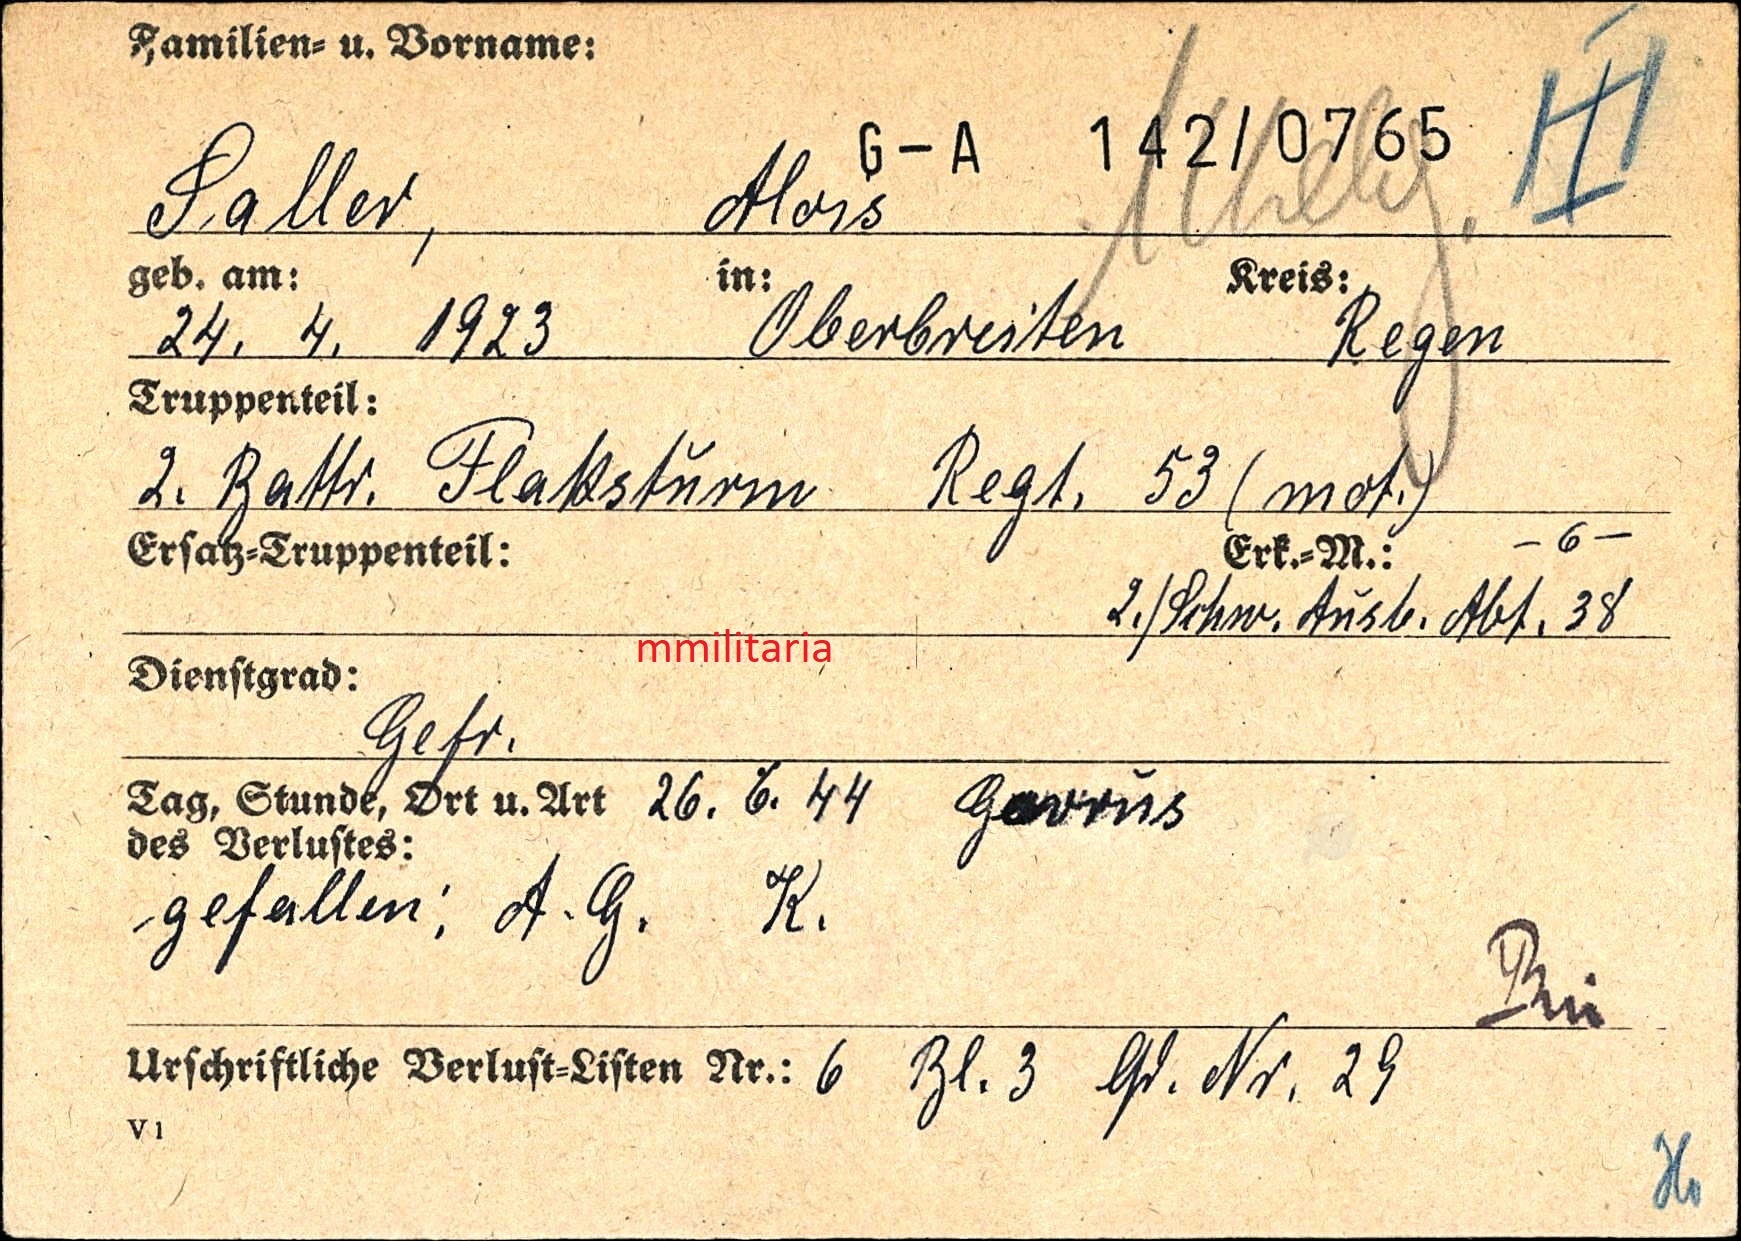 Familien- u. Vorname:
G-A 142/0765 III
Saller, Alois
geb. am: in: Kreis:
24. 4. 1923 Oberbreiten Regen
Truppenteil:
2. Battr. Flaksturm Regt. 53 (mot.)
Ersatz-Truppenteil: Erk.-M.: -6-
2./Schw. Ausb. Abt. 38
mmilitaria
Dienstgrad:
Gefr.
Tag, Stunde, Ort u. Art 26. 6. 44 Gavrus
des Verlustes:
gefallen; A. G. K.
Urschriftliche Verlust-Listen Nr.: 6 Bl. 3 lfd. Nr. 29
V 1